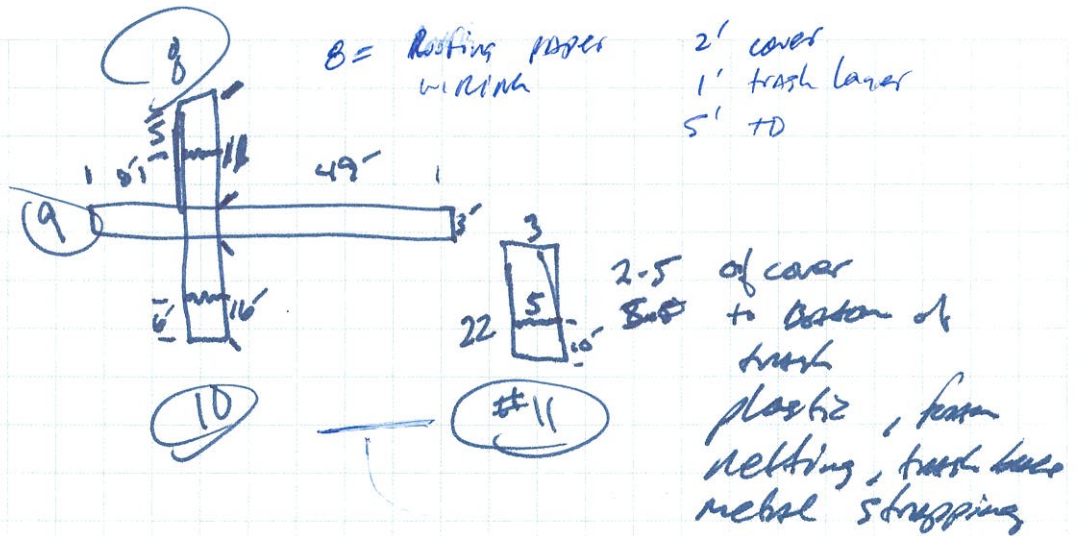 8
8 = Roofing paper
wiring
2' cover
1' trash layer
5' TD
49'
9
3'
6'
16'
10
3
5
22
10'
#11
2.5 of cover
to bottom of
trash
plastic, foam
netting, trash
metal strapping